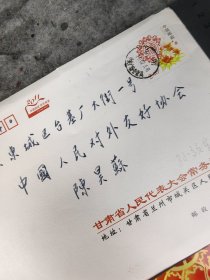 东城区台基厂大街一号
中国人民对外友好协会
陈昊苏
甘肃省人民代表大会常务
地址：甘肃省兰州市城关区人
邮政